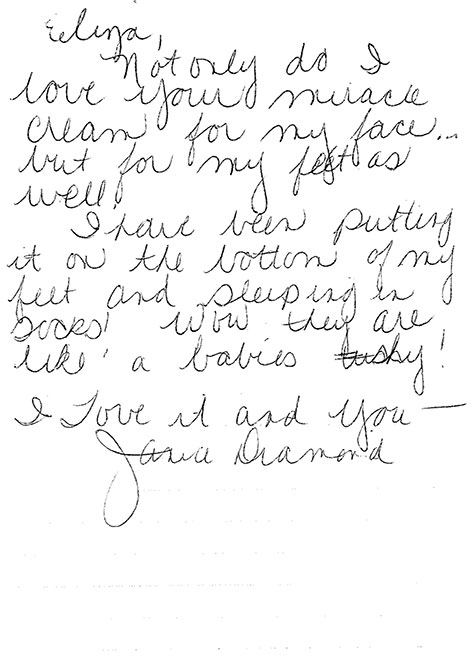 Elina,
Not only do I
love your miracle
cream for my face...
but for my feet as
well!
I have been putting
it on the bottom of my
feet and sleeping in
socks! Wow they are
like a babies tushy!
I Love it and you —
Diamond